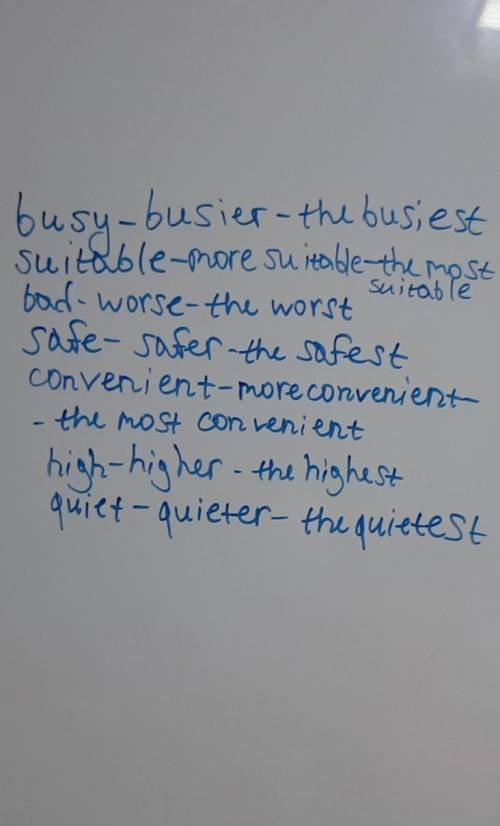 busy-busier-the busiest
suitable-more suitable-the most
suitable
bad-worse-the worst
safe-safer-the safest
convenient-more convenient-
-the most convenient
high-higher-the highest
quiet-quieter-the quietest